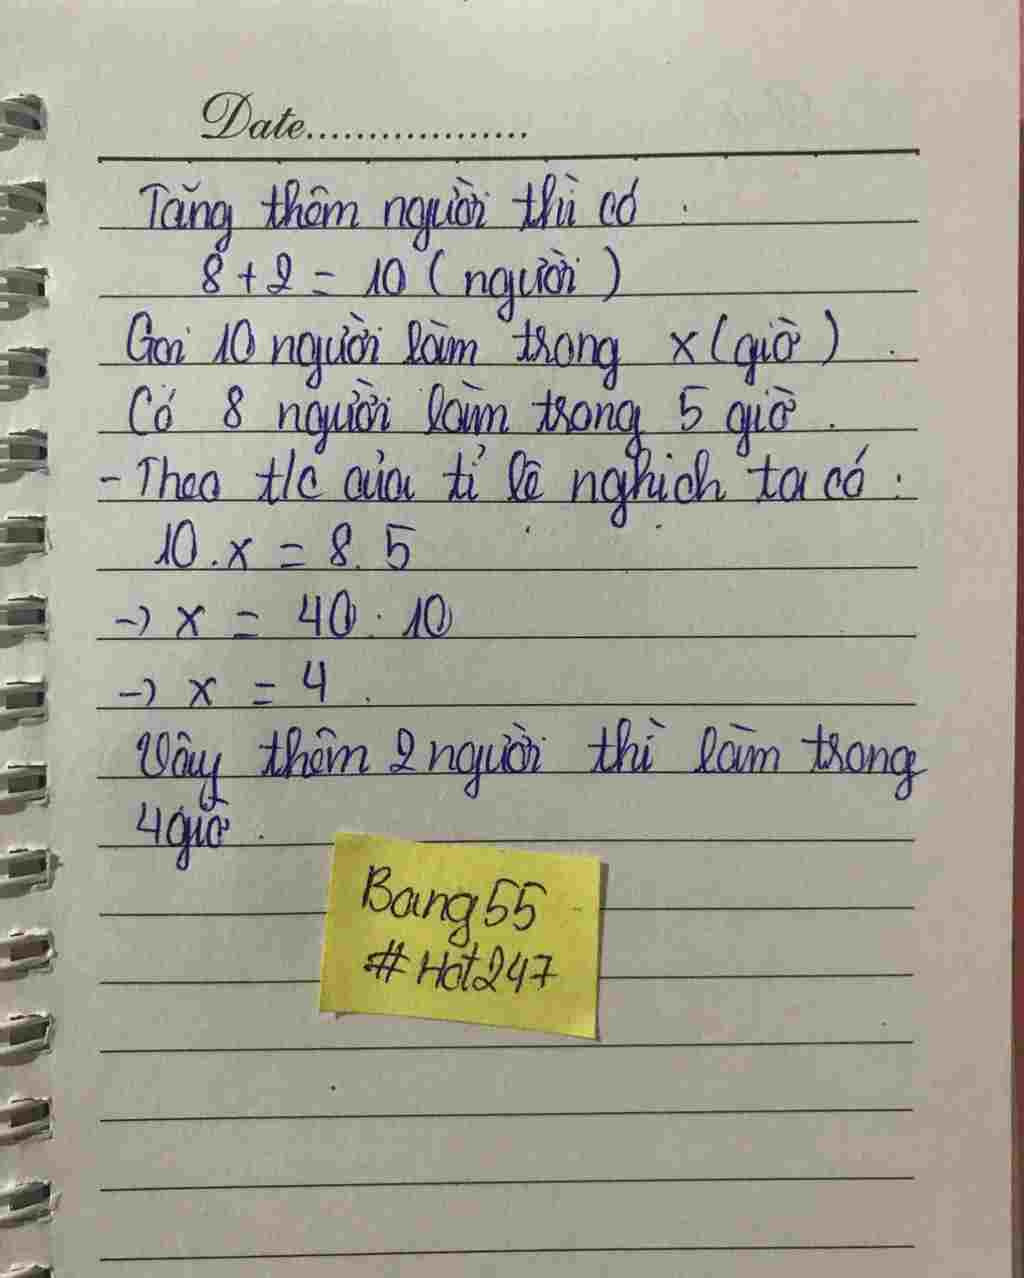 Date..................
Tăng thêm người thì có
8 + 2 = 10 ( người )
Gọi 10 người làm trong x ( giờ )
Có 8 người làm trong 5 giờ.
- Theo t/c của tỉ lệ nghịch ta có :
10 . x = 8 . 5
-> x = 40 : 10
-> x = 4.
Vậy thêm 2 người thì làm trong
4 giờ.
Bang55
#Hot247